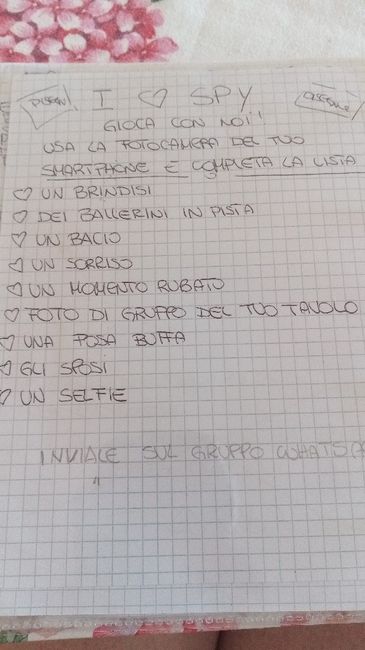 I ♡ SPY
GIOCA CON NOI!!
USA LA FOTOCAMERA DEL TUO
SMARTPHONE E COMPLETA LA LISTA
♡ UN BRINDISI
♡ DEI BALLERINI IN PISTA
♡ UN BACIO
♡ UN SORRISO
♡ UN MOMENTO RUBATO
♡ FOTO DI GRUPPO DEL TUO TAVOLO
♡ UNA POSA BUFFA
♡ GLI SPOSI
♡ UN SELFIE
INVIALE SUL GRUPPO WHATSA
"